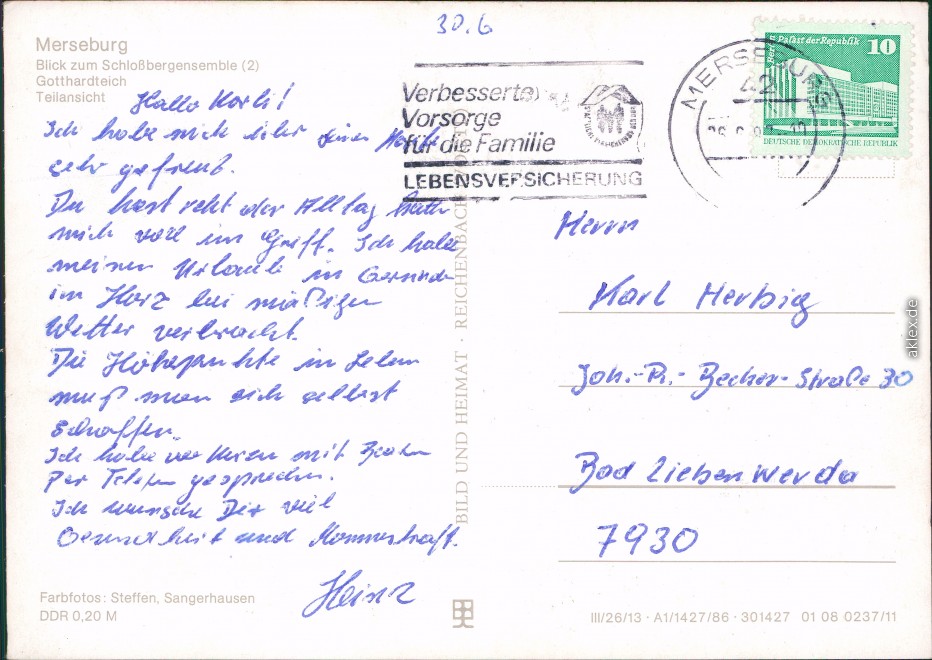 30.6
Merseburg
Blick zum Schloßbergensemble (2)
Gotthardteich
Teilansicht
Hallo Karli!
Ich habe mich über
sehr gefreut.
Du hast recht der Alltag hatte
mich voll im Griff. Ich habe
meinen Urlaub in Gernrode
im Harz bei mäßigen
Wetter verbracht.
Die Höhepunkte im Leben
muß man sich selbst
schaffen.
Ich habe vor kurzen mit
Per Telefon gesprochen.
Ich wünsche Dir viel
Gesundheit und Manneskraft.
Heinz
Farbfotos: Steffen, Sangerhausen
DDR 0,20 M
BILD UND HEIMAT · REICHENBACH
Verbesserte
Vorsorge
für die Familie
LEBENSVERSICHERUNG
MERSEBURG
42
Palast der Republik
10
DEUTSCHE DEMOKRATISCHE REPUBLIK
Herrn
Karl Herbig
Joh.-R.-Becher-Straße 30
Bad Liebenwerda
7930
III/26/13 · A1/1427/86 · 301427 01 08 0237/11
aklex.de